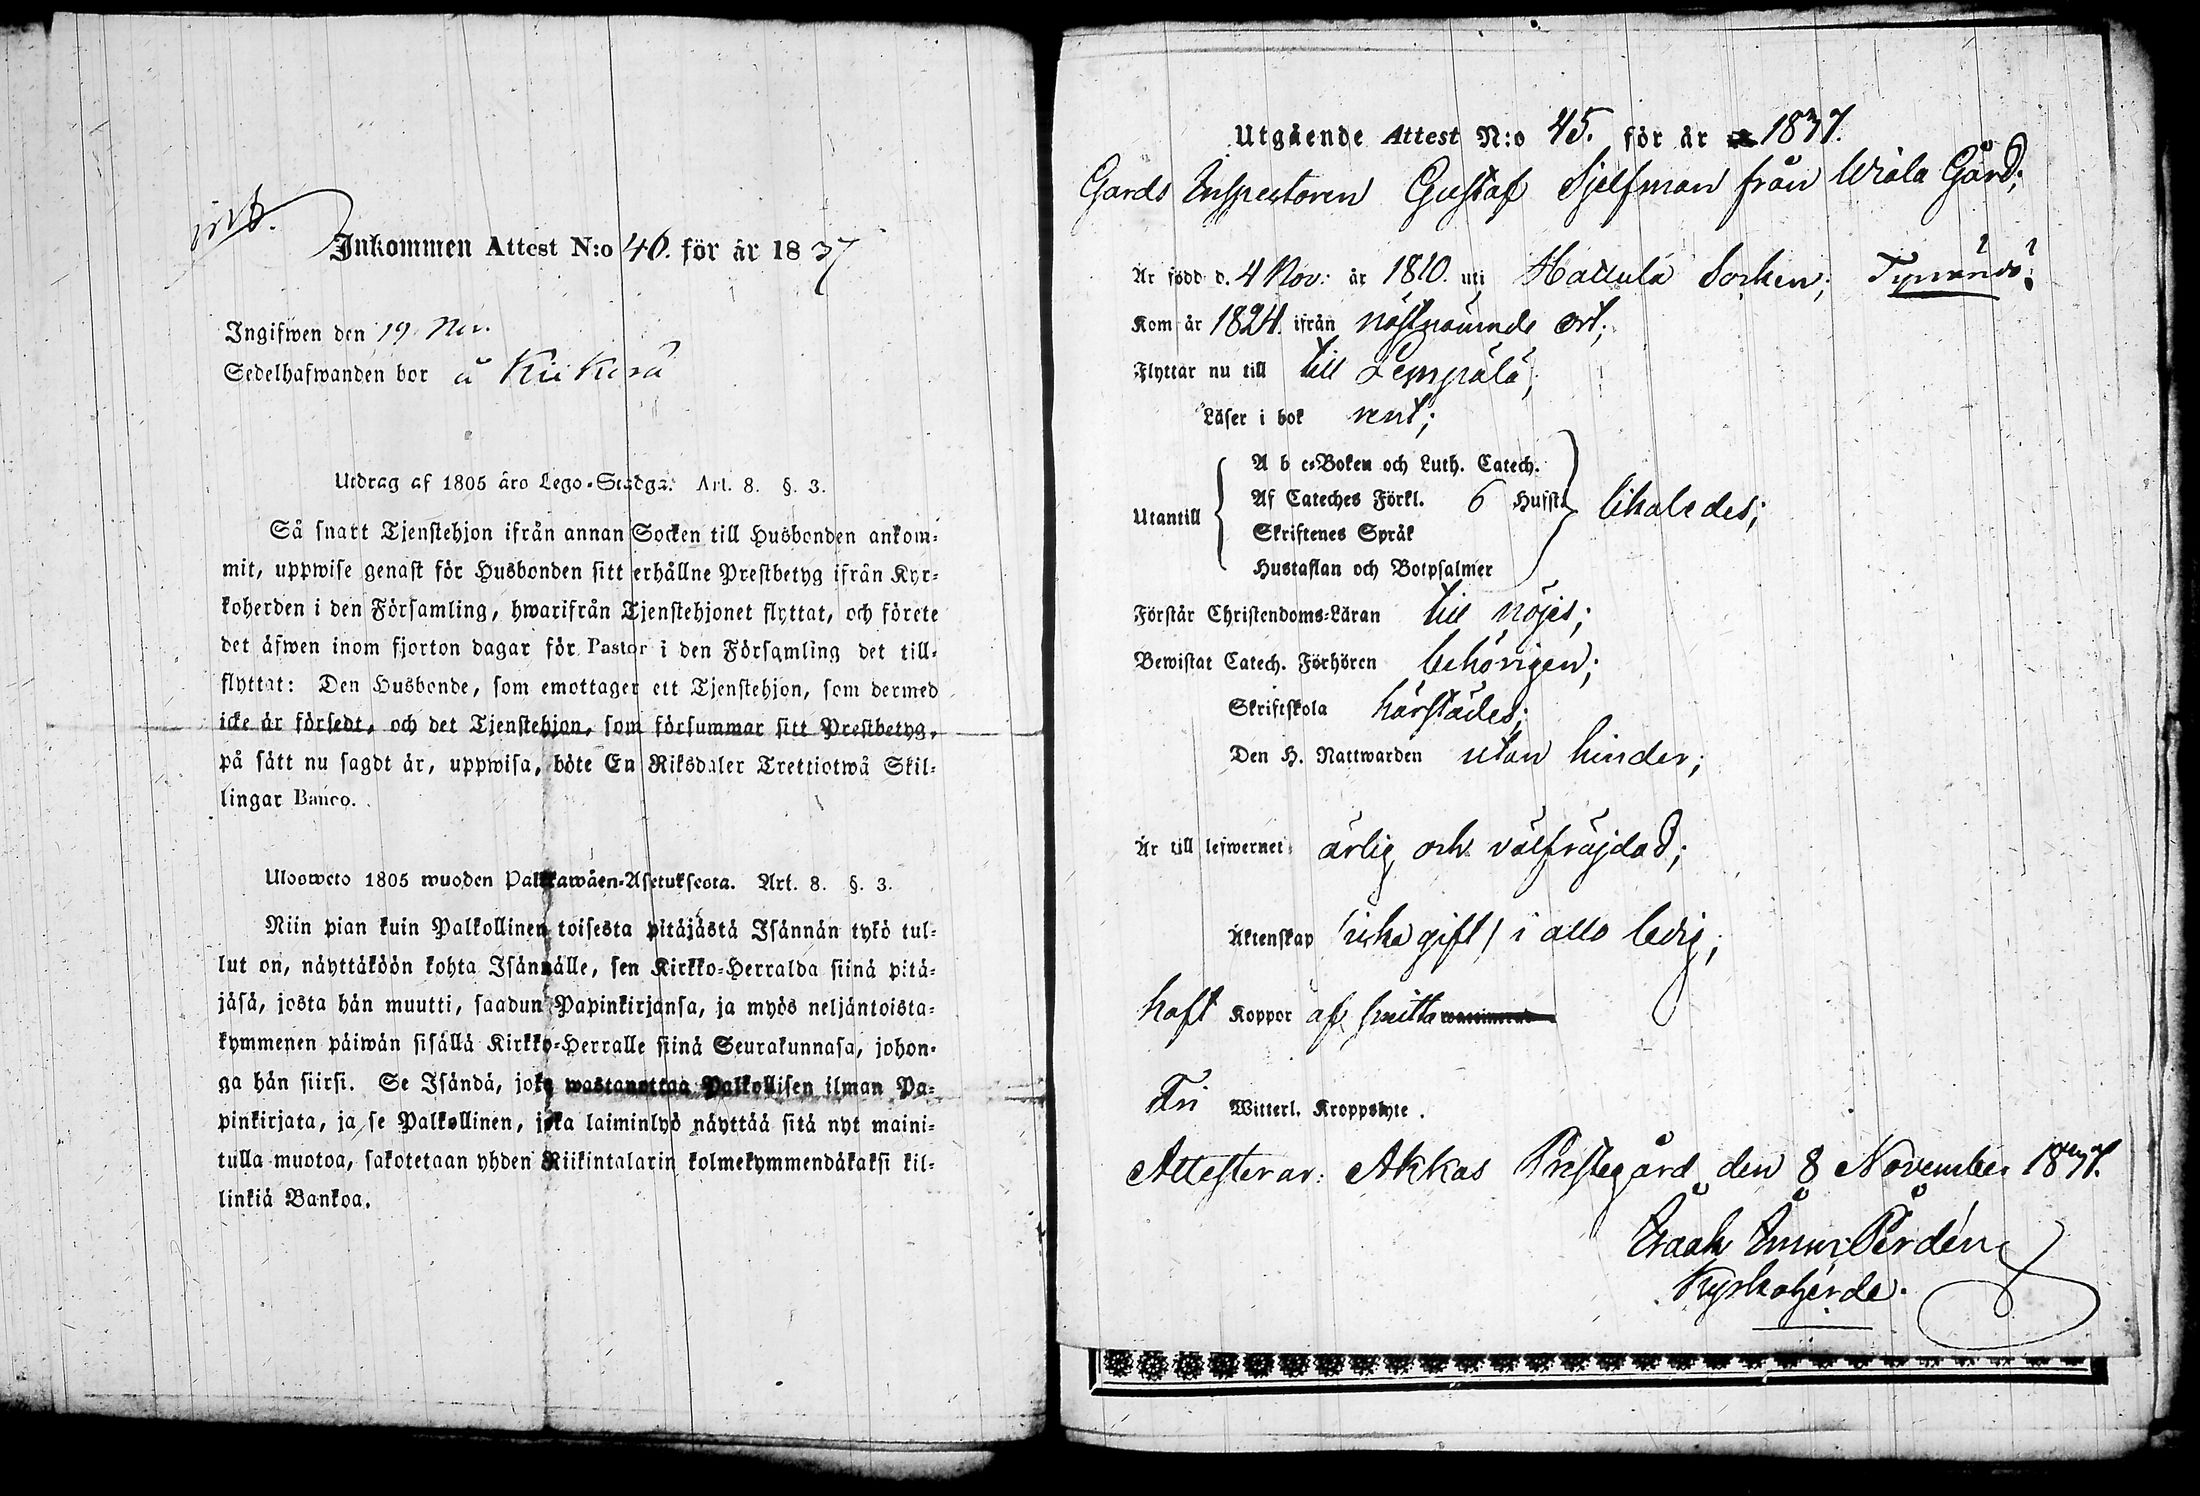 Inkommen Attest N:o 46. för år 1837
Ingifwen den 19 Nov.
Sedelhafwanden bor å Kuckola
Utdrag af 1805 års Lego-Stadga. Art. 8. §. 3.
Så snart Tjenstehjon ifrån annan Socken till Husbonden ankom-
mit, uppwise genast för Husbonden sitt erhållne Prestbetyg ifrån Kyr-
koherden i den Församling, hwarifrån Tjenstehjonet flyttat, och förete
det äfwen inom fjorton dagar för Pastor i den Församling det till-
flyttat: Den Husbonde, som emottager ett Tjenstehjon, som dermed
icke är försedt, och det Tjenstehjon, som försummar sitt Prestbetyg,
på sätt nu sagdt är, uppwisa, böte En Riksdaler Trettiotwå Skil-
lingar Banco.
Ulosweto 1805 wuoden Palkkawäen-Asetuksesta. Art. 8. §. 3.
Niin pian kuin Palkollinen toisesta pitäjästä Isännän tykö tul-
lut on, näyttäköön kohta Isännälle, sen Kirkko-Herralda siinä pitä-
jäsä, josta hän muutti, saadun Papinkirjansa, ja myös neljäntoista-
kymmenen päiwän sisällä Kirkko-Herralle siinä Seurakunnasa, johon-
ga hän siirsi. Se Isändä, joka wastanottaa Palkollisen ilman Pa-
pinkirjata, ja se Palkollinen, joka laiminlyö näyttää sitä nyt maini-
tulla muotoa, sakotetaan yhden Riikintalarin kolmekymmendäkaksi kil-
linkiä Bankoa.
Utgående Attest N:o 45. för år 1837.
Gards Inspectoren Gustaf Sjelfman från Wiala Gård;
Är född d. 4 Nov: år 1810. uti Hattula Socken; Tyrwändö?
Kom år 1824. ifrån nästnämnde ort;
Flyttar nu till till Lempälä;
Läser i bok rent;
A b c-Boken och Luth. Catech.
Af Cateches Förkl. 6 Hufst.
Utantill likaledes;
Skriftenes Språk
Hustaflan och Botpsalmer
Förstår Christendoms-Läran till nöjes;
Bewistat Catech. Förhören behörigen;
Skriftskola härstädes;
Den H. Nattwarden utan hinder;
Är till lefwernet ärlig och välfräjdad;
Äktenskap (icke gift) i allo ledig;
haft Koppor af smitta
Fri Witterl. Kroppslyte.
Attesterar: Akkas Prestegård den 8 November 1837.
Isaak Perdén
Kyrkoherde.